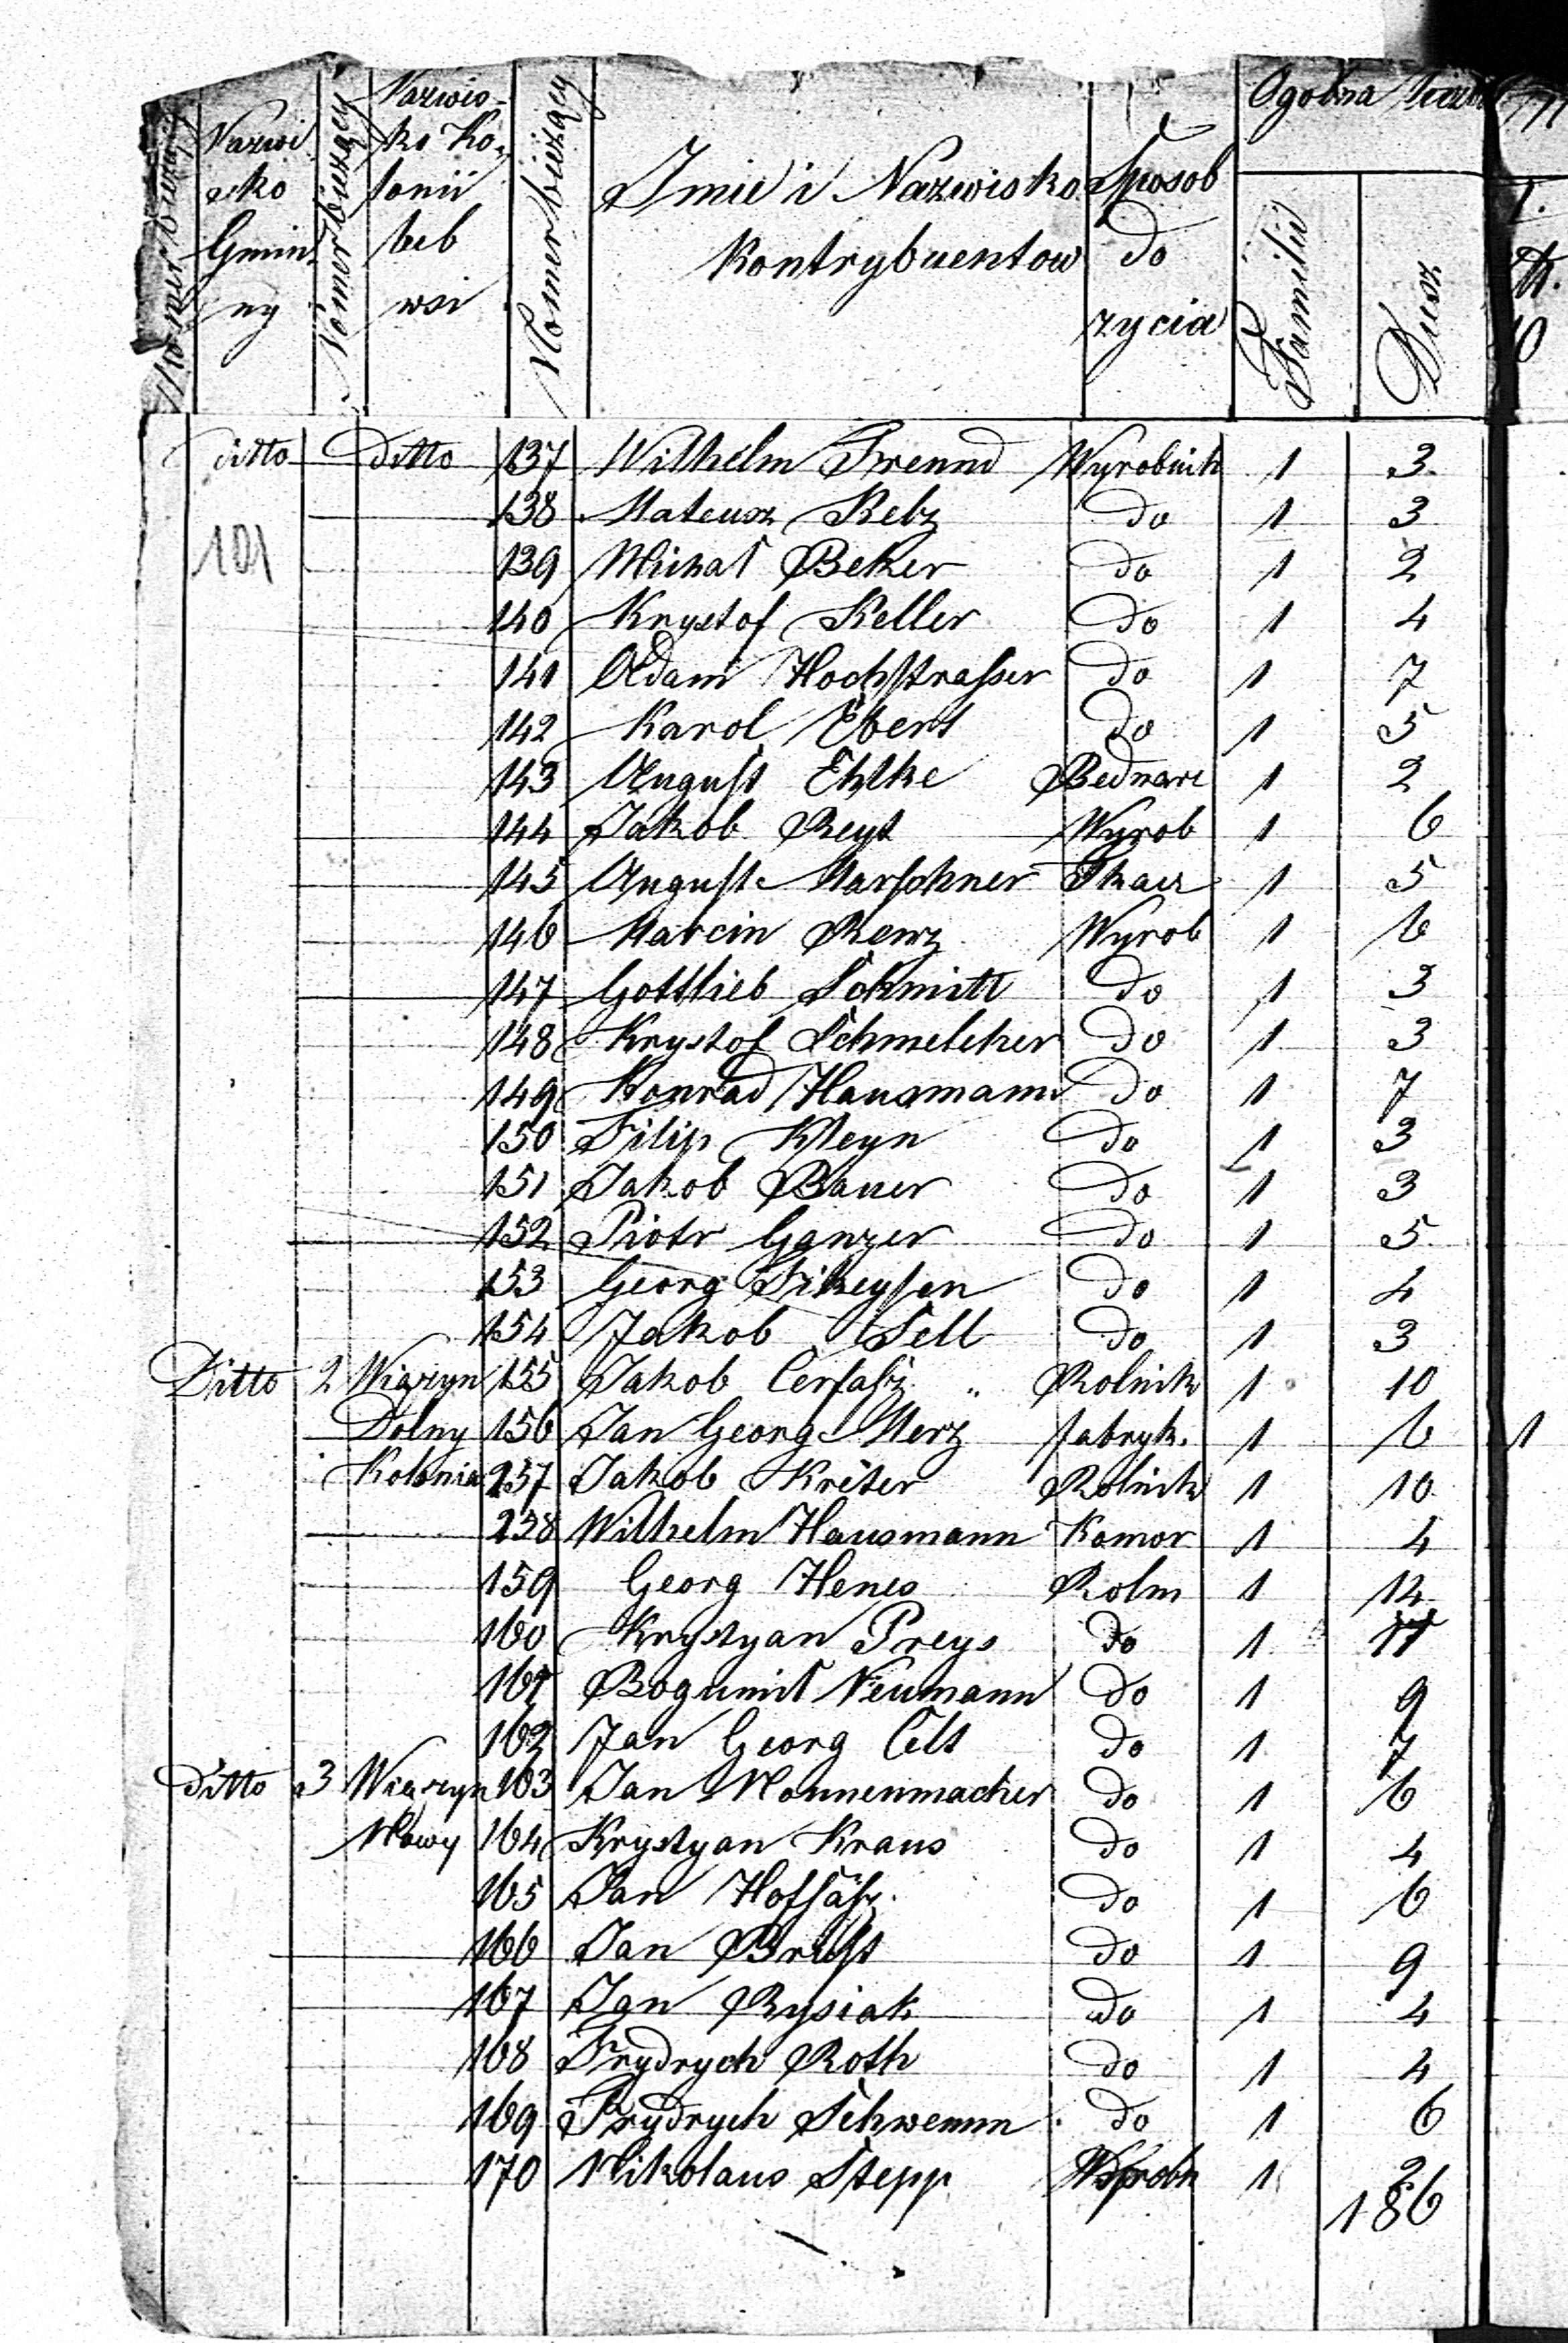 Nomer bieżący
Nazwisko Gminny
Nomer bieżący
Nazwisko Kolonii lub wsi
Nomer bieżący
Imie i Nazwisko Kontrybuentow
Sposob do zycia
Ogolna
Familii
Dusz
ditto ditto 137 Wilhelm Freund Wyrobnik 1 3
138 Mateusz Kelz do 1 3
101 139 Michał Beker do 1 2
140 Krystof Keller do 1 4
141 Adam Hochstraßer do 1 7
142 Karol Ebert do 1 5
143 August Ehlke Bednarz 1 2
144 Jakob Reyt Wyrob 1 6
145 August Marschner Tkacz 1 5
146 Marcin Renz Wyrob 1 6
147 Gottlieb Schmitt do 1 3
148 Krystof Schmelcher do 1 3
149 Konrad Hausmann do 1 7
150 Filip Kleyn do 1 3
151 Jakob Bauer do 1 3
152 Piotr Ganzer do 1 5
153 Georg Fikeysen do 1 4
154 Jakob Sell do 1 3
Ditto 2 Wiązyn 155 Jakob Cerfaß " Rolnik 1 10
Dolny 156 Jan Georg Merz fabryk. 1 6 1
Kolonia 157 Jakob Kriter Rolnik 1 10
158 Wilhelm Hausmann Komor 1 4
159 Georg Henes Roln 1 12
160 Krystyan Preys do 1 11
161 Bogumił Neumann do 1 9
162 Jan Georg Celt do 1 7
ditto 3 Wiązyn 163 Jan Nonnenmacher do 1 6
Nowy 164 Krystyan Kraus do 1 4
165 Jan Hofsäß do 1 6
166 Jan Brust do 1 9
167 Jan Rysiak do 1 4
168 Frydrych Roth do 1 4
169 Frydrych Schwemm do 1 6
170 Nikolaus Stepp Wyrobn 1 2
186